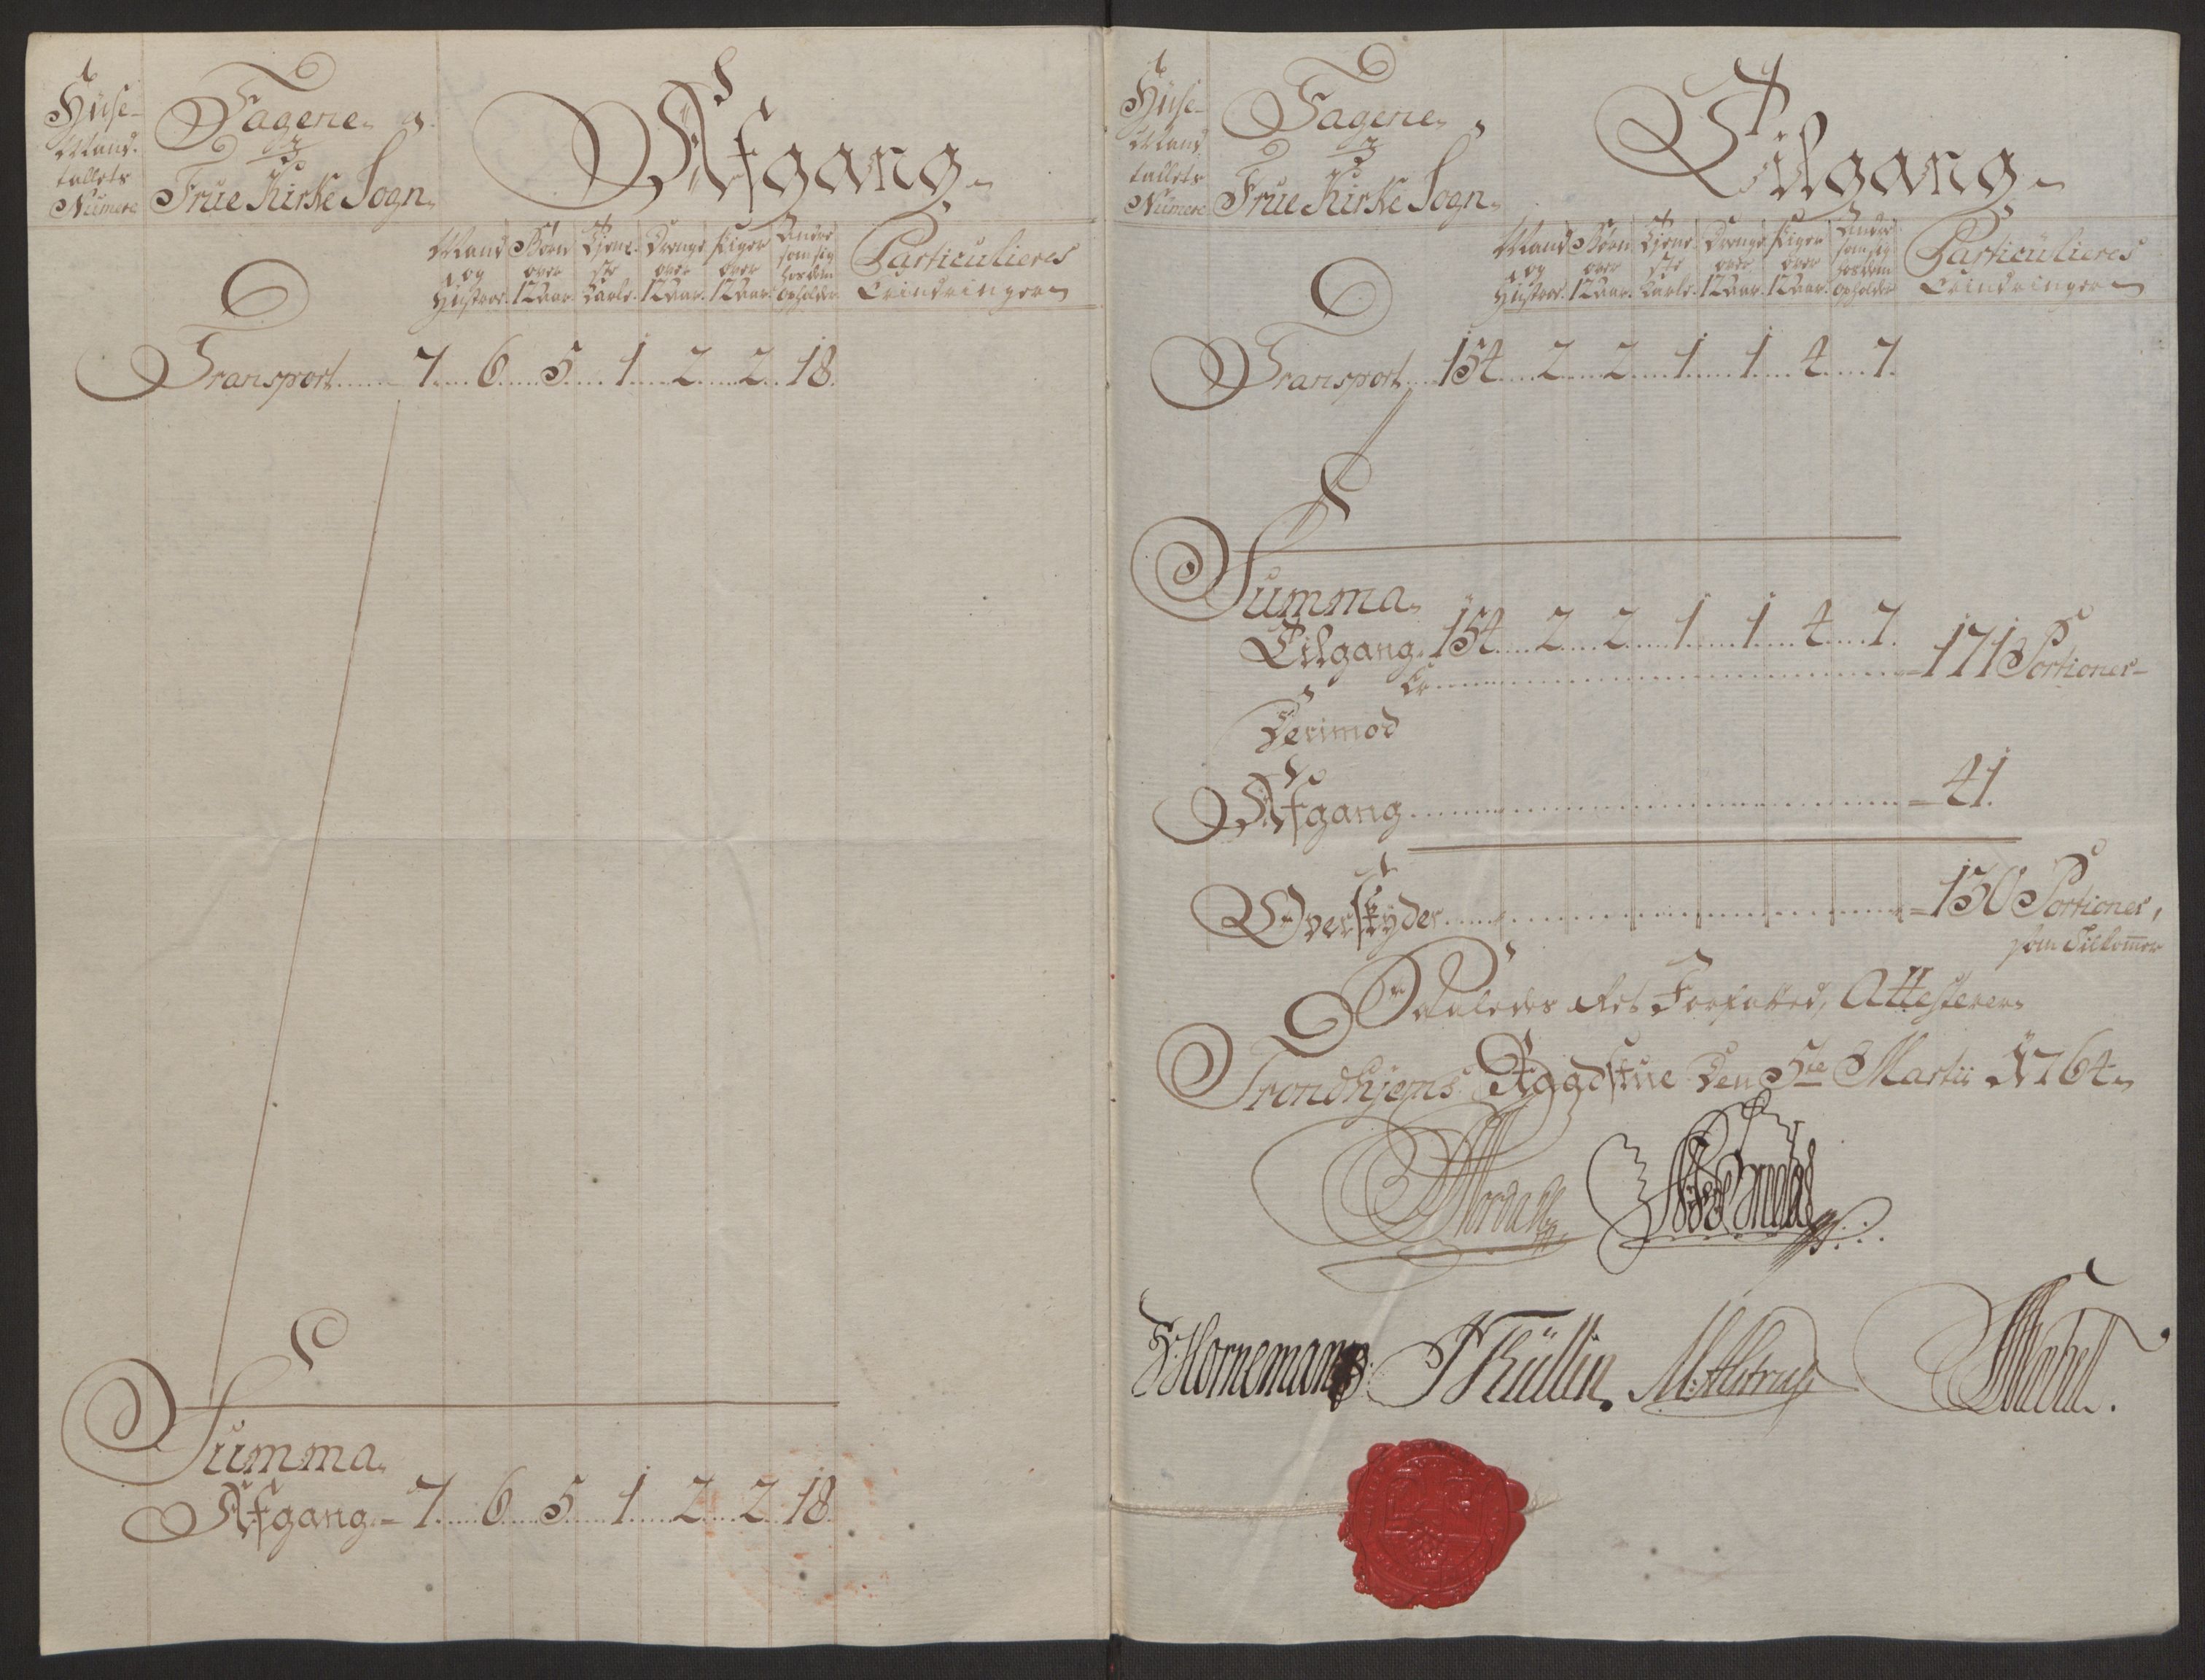 Huse-
Mand-
tallets
Numere
Tagene
i
Frue Kirke Sogn
Afgang
Mand og Hustroe.
Børn over 12 aar.
Tjene-ste Karle.
Drenge over 12 aar.
Piger over 12 aar.
Andre som sig hos dem opholder
Particulieres Erindringer
Transport 7 6 5 1 2 2 18.
Summa
Afgang 7 6 5 1 2 2 18.
Huse-
Mand
tallets
Numere
Tagene
i
Frue Kirke Sogn
Tilgang
Mand og Hustroe.
Børn over 12 aar.
Tjene-ste Karle.
Drenge over 12 aar.
Piger over 12 aar.
Andre som sig hos dem opholder
Particulieres Erindringer
Transport 154 2 2 1 1 4 7.
Summa
Tilgang 154 2 2 1 1 4 7.
Er 171 Portioner
Derimod
Afgang 41.
Overskyder 130 Portioner,
som Tilkom̅er
Saaledes Ret Forfatted, Attesterer
Trondhjems Raadstue Den 5te Martii 1764
H: Hornemann JKüllin. M: Alstrup